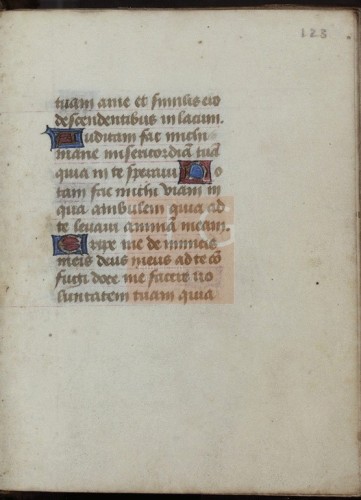 123
tuam a me et similis ero
descendentibus in lacum.
Auditam fac michi
mane misericordiā tuā
quia in te speravi No
tam fac michi viam in
qua ambulem quia ad
te levavi animā meam.
Eripe me de inimicis
meis deus meus ad te cō
fugi doce me facere vo
luntatem tuam quia